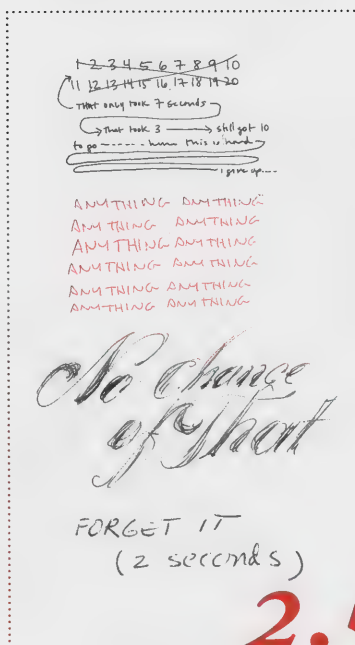 1 2 3 4 5 6 7 8 9 10
11 12 13 14 15 16 17 18 19 20
THAT only took 7 seconds
That took 3 still got 10
to go ------ hmm this is hard
i give up....
ANYTHING ANYTHING
ANYTHING ANYTHING
ANYTHING ANYTHING
ANYTHING ANYTHING
ANYTHING ANYTHING
ANYTHING ANYTHING
No chance
of
FORGET IT
(2 seconds)
2.